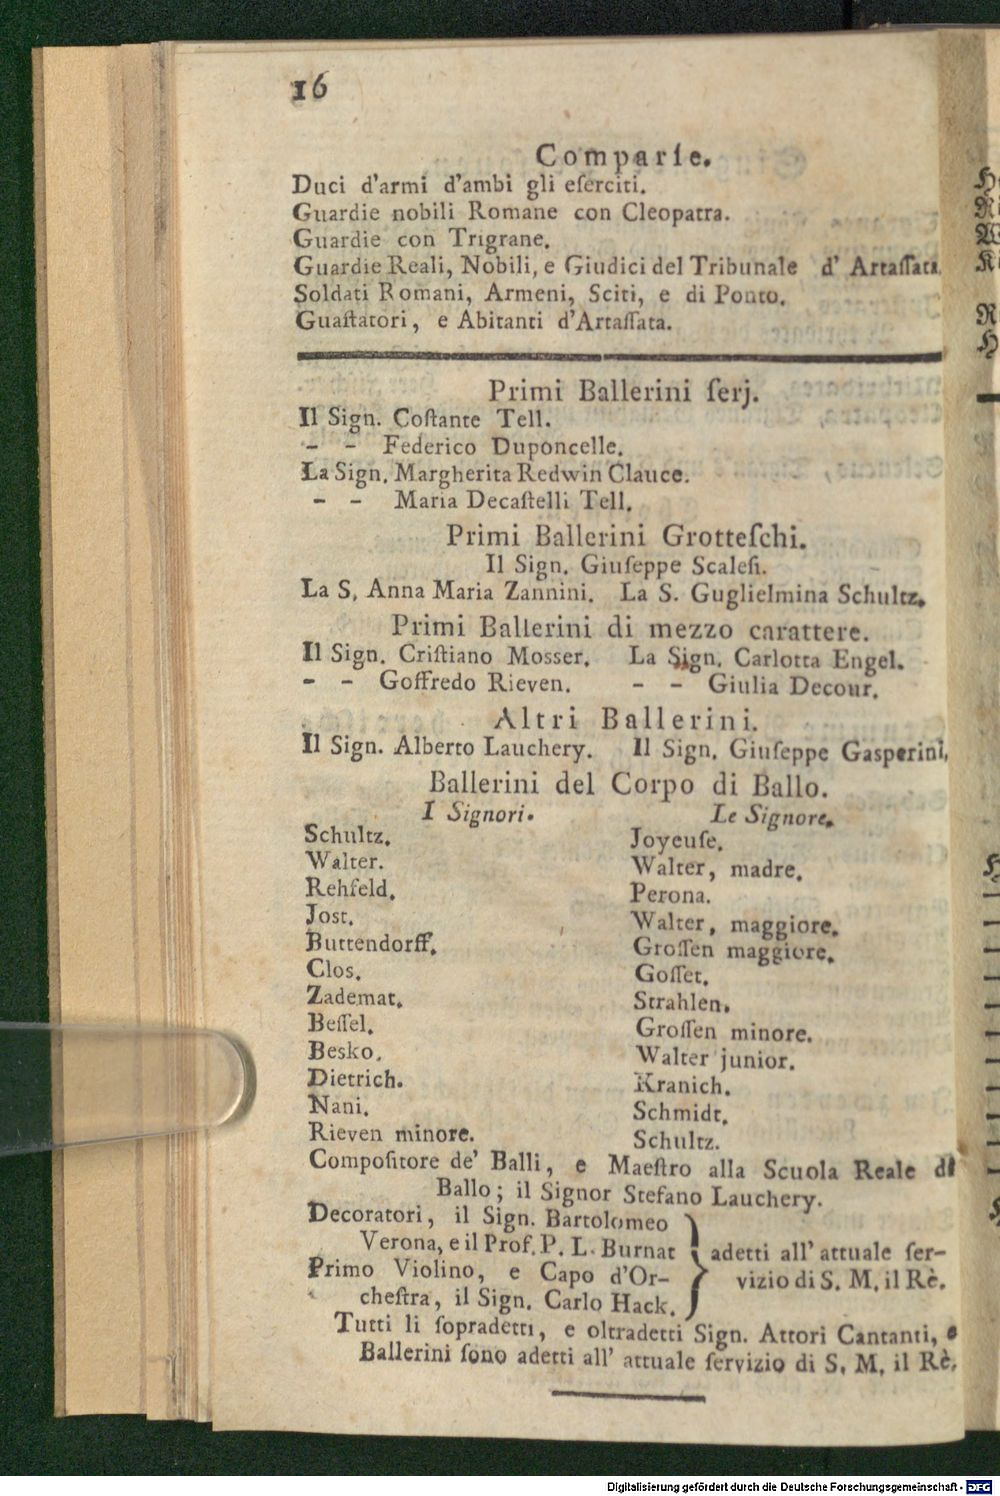 16
Comparſe.
Duci d'armi d'ambi gli eſerciti.
Guardie nobili Romane con Cleopatra.
Guardie con Trigrane.
Guardie Reali, Nobili, e Giudici del Tribunale d' Artaſſata
Soldati Romani, Armeni, Sciti, e di Ponto.
Guaſtatori, e Abitanti d'Artaſſata.
Primi Ballerini ſerj.
Il Sign. Coſtante Tell.
– – Federico Duponcelle.
La Sign. Margherita Redwin Clauce.
– – Maria Decaſtelli Tell.
Primi Ballerini Grotteſchi.
Il Sign. Giuſeppe Scaleſi.
La S. Anna Maria Zannini. La S. Guglielmina Schultz.
Primi Ballerini di mezzo carattere.
Il Sign. Criſtiano Mosser. La Sign. Carlotta Engel.
– – Goffredo Rieven. – – Giulia Decour.
Altri Ballerini.
Il Sign. Alberto Lauchery. Il Sign. Giuſeppe Gasperini.
Ballerini del Corpo di Ballo.
I Signori. Le Signore.
Schultz. Joyeuſe.
Walter. Walter, madre.
Rehfeld. Perona.
Jost. Walter, maggiore.
Buttendorff. Groſſen maggiore.
Clos. Goſſet.
Zademat. Strahlen.
Beſſel. Groſſen minore.
Besko. Walter junior.
Dietrich. Kranich.
Nani. Schmidt.
Rieven minore. Schultz.
Compoſitore de' Balli, e Maeſtro alla Scuola Reale di
Ballo; il Signor Stefano Lauchery.
Decoratori, il Sign. Bartolomeo
Verona, e il Prof. P. L. Burnat } adetti all' attuale ſer-
Primo Violino, e Capo d'Or- vizio di S. M. il Rè.
cheſtra, il Sign. Carlo Hack.
Tutti li ſopradetti, e oltradetti Sign. Attori Cantanti, e
Ballerini ſono adetti all' attuale ſervizio di S. M. il Rè.
Digitalisierung gefördert durch die Deutsche Forschungsgemeinschaft - DFG